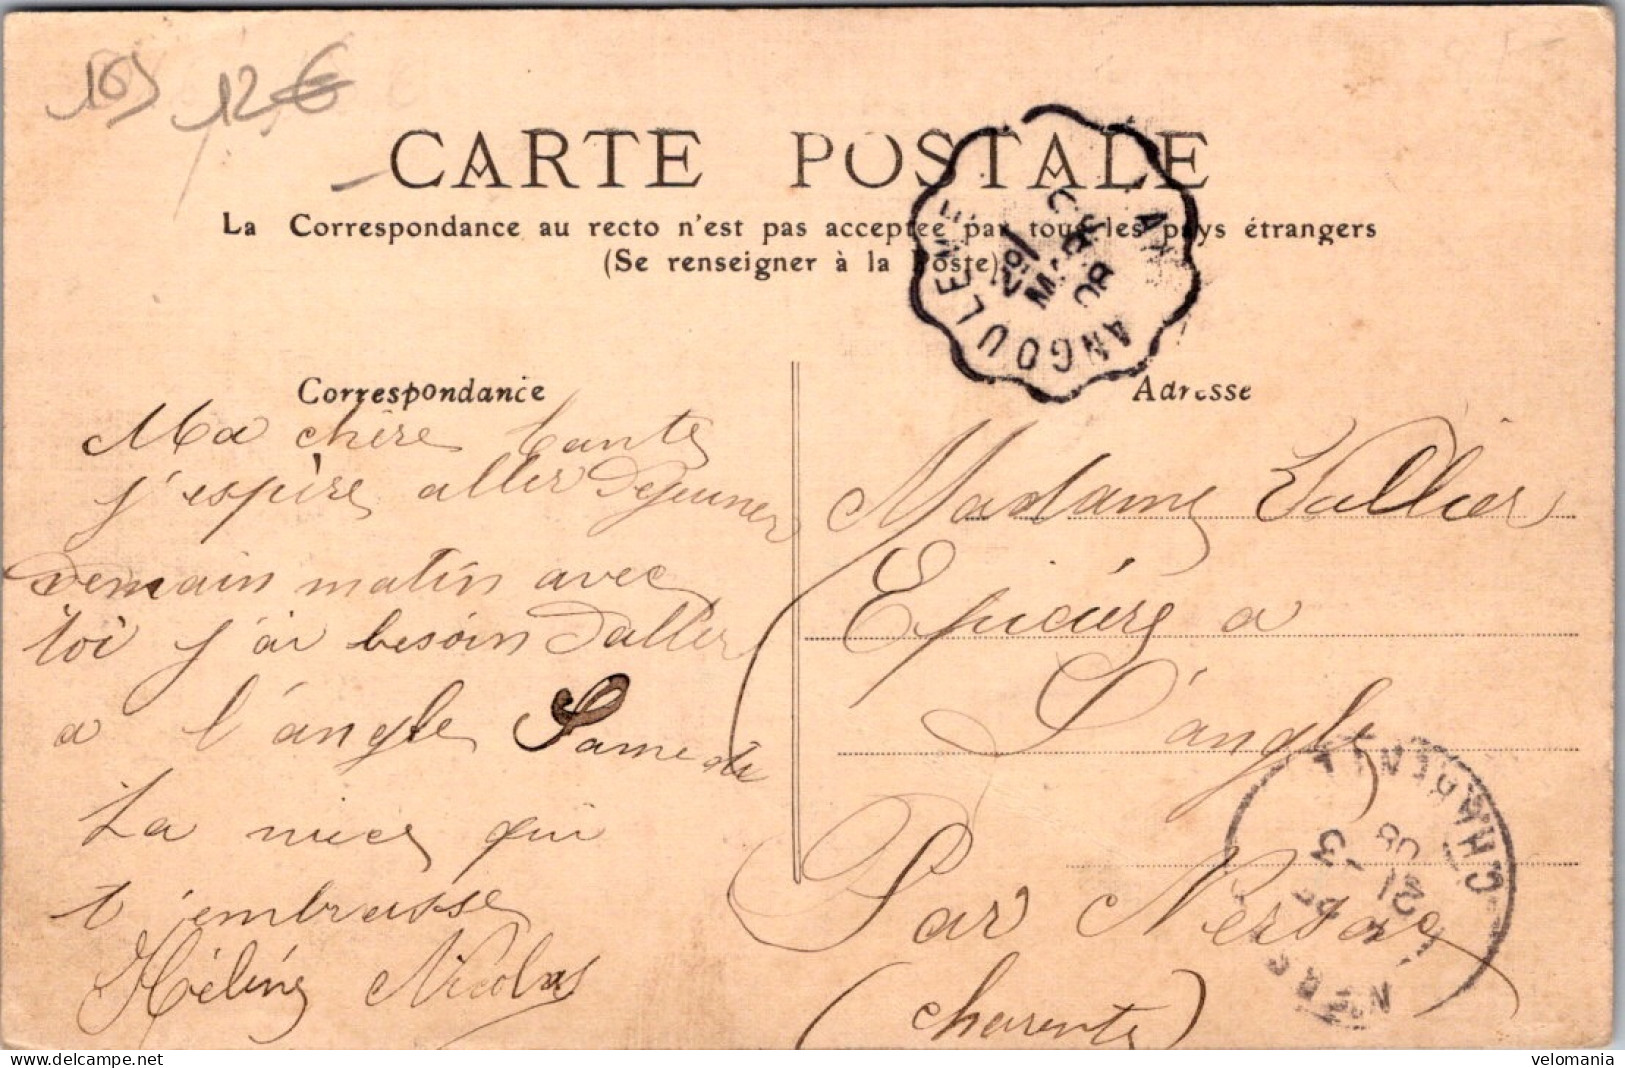 165 12€
CARTE POSTALE
La Correspondance au recto n'est pas acceptée par tous les pays étrangers
(Se renseigner à la Poste)
ANGOULEME
MARS
08
Correspondance
Ma chère tante
j'espère aller dejeuner
demain matin avec
toi j'ai besoin daller
a l'angle Samedi
La niece qui
t'embrasse
Hélène Nicolas
Adresse
Madame Vallier
Epicière a
L'angle
Par Nersac
(charente)
CHARENTE
21 -3
08
NERSAC
velomania
www.delcampe.net